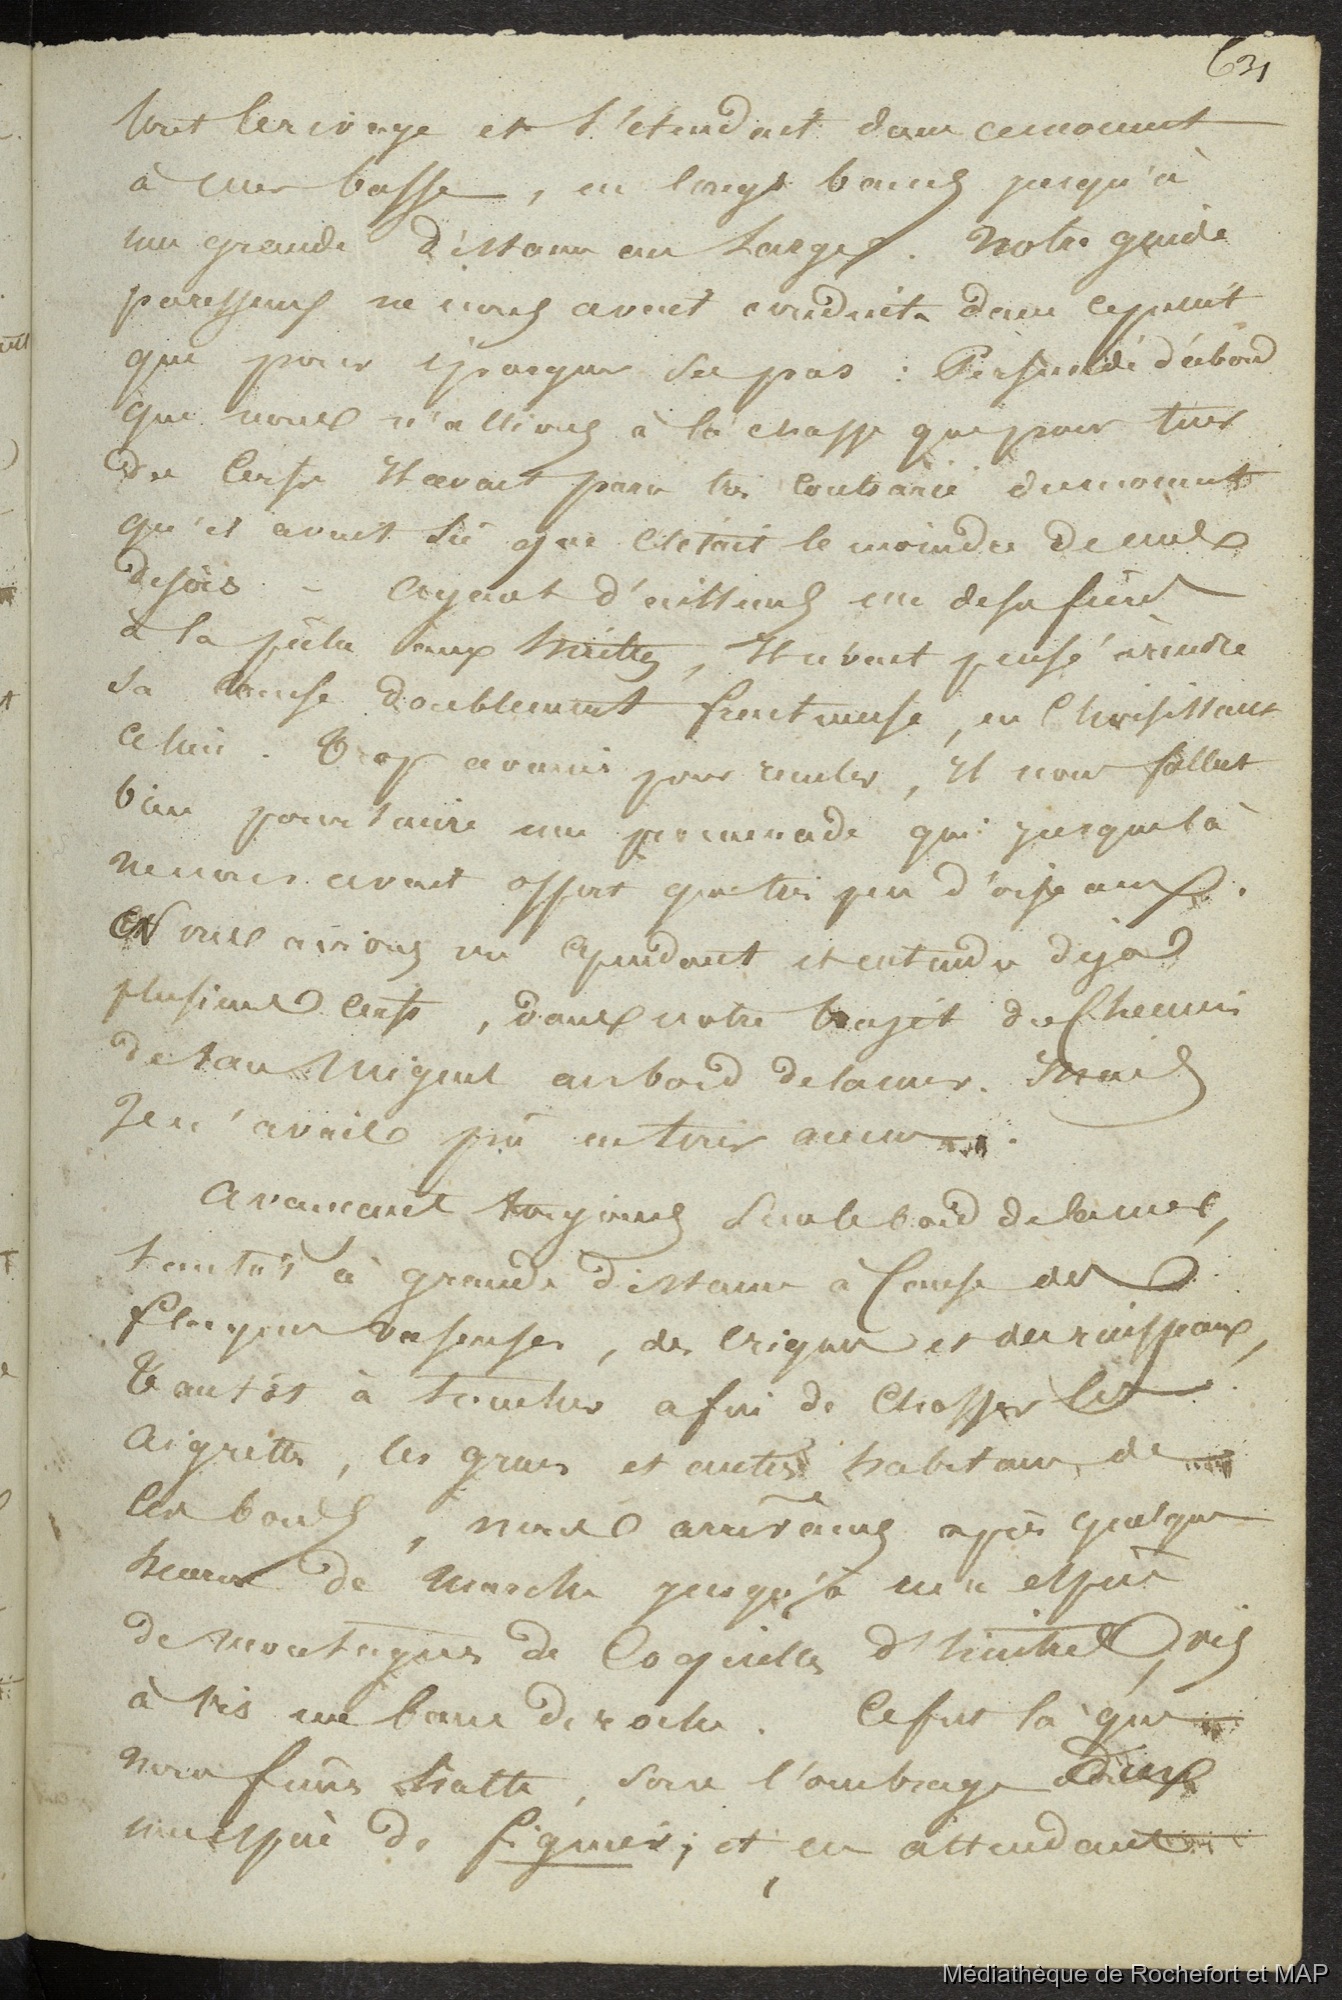 631
tout le rivage et s'étendait dans ce moment
à mer basse, en longs bancs jusqu'à
une grande distance au large. Notre guide
paresseux ne nous avait conduits dans ce point
que pour épargner ses pas : Persuadé d'abord
que nous n'allions à la chasse que pour tuer
des cerfs il avait paru très contrarié du moment
qu'il avait sû que c'était le moindre de nos
desirs - ayant d'ailleurs un de ses frères
à la pêche aux huîtres, il avait pensé à rendre
sa course doublement fructueuse, en choisissant
celui. Trop avancés pour reculer, il nous fallut
bien poursuivre une promenade qui jusque là
ne nous avait offert que très peu d'oiseaux.
Nous avions vu cependant et entendu déjà
plusieurs cerfs, dans notre trajet du chemin
de San Miguel au bord de la mer. Mais
je n'avais pû en tirer aucun.
Avançant toujours sur le bord de la mer,
tantôt à grande distance à cause des
flaques vaseuses, des criques et des ruisseaux,
Tantôt à toucher afin de chasser les
aigrettes, les grues et autres habitans de
ces bords, nous arrivâmes après quelques
heures de marche jusqu'à une espèce
de montagnes de coquilles d'huîtres, vis
à vis un banc de roche. Ce fut là que
nous fîmes halte, sous l'ombrage d'une
une espèce de figuier, et en attendant
Médiathèque de Rochefort et MAP